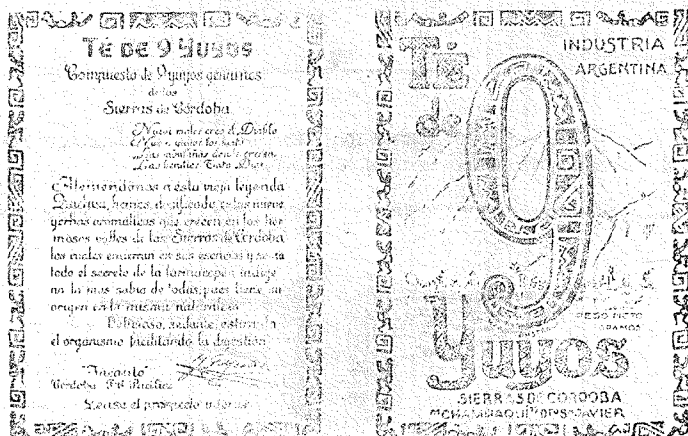 TÉ DE 9 YUYOS
Compuesto de 9 yuyos genuinos
de las
Sierras de Córdoba
Nueve males creó el Diablo
las bendice Tata Dios
Ateniéndonos a esta vieja leyenda
Quichua, hemos dosificado estas nueve
yerbas aromáticas que crecen en los her
mosos valles de las Sierras de Córdoba
los cuales encierran en sus esencias y
todo el secreto de la farmacopea indíge
na la mas sabia de todas, pues tiene su
origen en la misma naturaleza
Delicioso, sedante, estimula
el organismo facilitando la digestión
Córdoba F.C. Pacífico
Lease el prospecto interno
INDUSTRIA
ARGENTINA
Té
de
9
Yuyos
PESO NETO
GRAMOS
SIERRAS DE CORDOBA